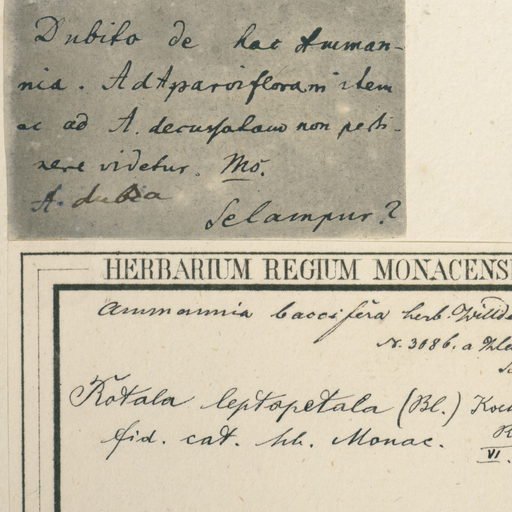 Dubito de hac Amman-
nia. Ad A parvifloram item
ac ad A. decussatam non perti-
nere videtur. Mo.
A. dubia
Selampur?
HERBARIUM REGIUM MONACENS
Ammannia baccifera herb. Willd
N. 3086. a
Rotala leptopetala (Bl.) Koe
fid. cat. hb. Monac.
VI.